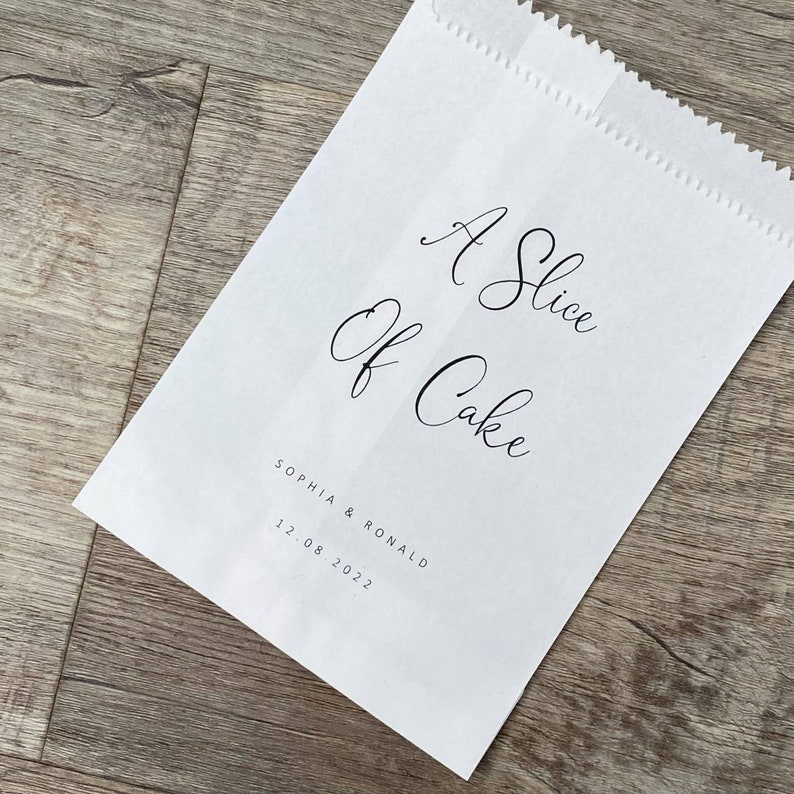 A Slice
Of Cake
SOPHIA & RONALD
12.08.2022